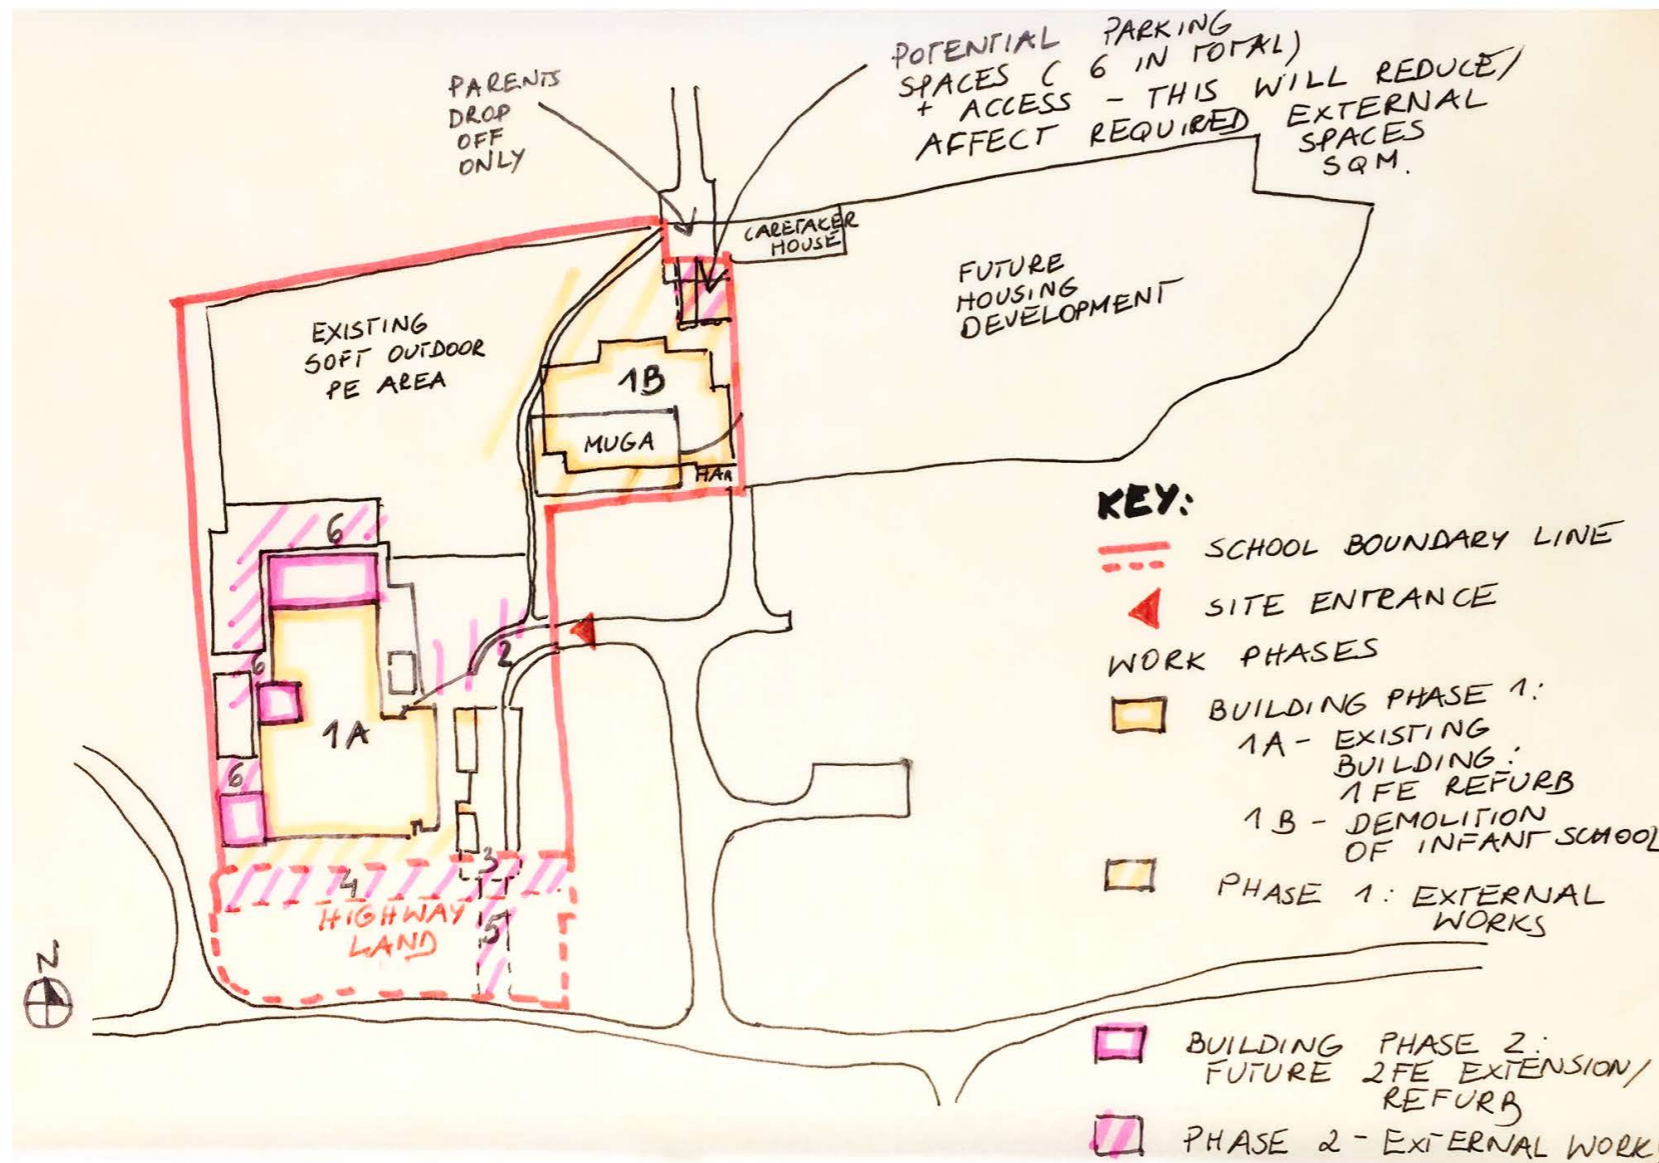 PARENTS
DROP
OFF
ONLY
POTENTIAL PARKING
SPACES ( 6 IN TOTAL)
+ ACCESS - THIS WILL REDUCE/
AFFECT REQUIRED EXTERNAL
SPACES
SQM.
CARETAKER
HOUSE
FUTURE
HOUSING
DEVELOPMENT
EXISTING
SOFT OUTDOOR
PE AREA
1B
MUGA
HAR
6
2
6
1A
6
3
4
HIGHWAY
LAND
5
N
KEY:
SCHOOL BOUNDARY LINE
SITE ENTRANCE
WORK PHASES
BUILDING PHASE 1:
1A - EXISTING
BUILDING:
1FE REFURB
1B - DEMOLITION
OF INFANT SCHOOL
PHASE 1: EXTERNAL
WORKS
BUILDING PHASE 2:
FUTURE 2FE EXTENSION/
REFURB
PHASE 2 - EXTERNAL WORK